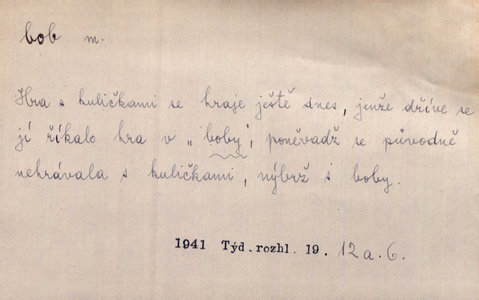 bob m.
Hra s kuličkami se hraje ještě dnes, jenže dříve se
jí říkalo hra v „boby", poněvadž se původně
nehrávala s kuličkami, nýbrž s boby.
1941 Týd.rozhl. 19. 12a.6.